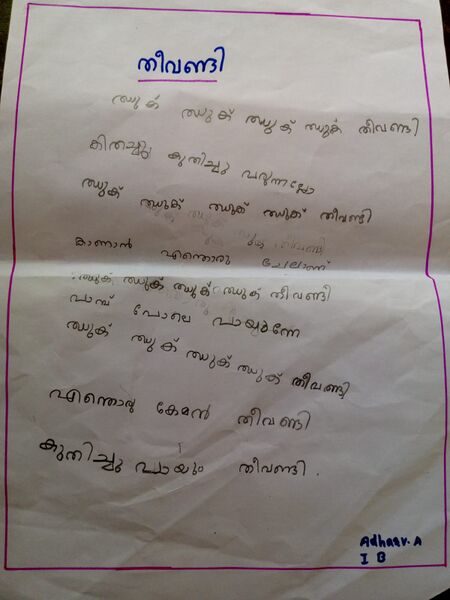 തീവണ്ടി
ഝുക് ഝുക് ഝുക് ഝുക് തീവണ്ടി
കിതച്ചു കുതിച്ചു വരുന്നല്ലോ
ഝുക് ഝുക് ഝുക് ഝുക് തീവണ്ടി
കാണാൻ എന്തൊരു ചേലാണ്
ഝുക് ഝുക് ഝുക് ഝുക് തീവണ്ടി
പാമ്പ് പോലെ പായുന്നേ
ഝുക് ഝുക് ഝുക് ഝുക് തീവണ്ടി
എന്തൊരു കേമൻ തീവണ്ടി
കുതിച്ചു പായും തീവണ്ടി.
Adhaav.A
I B